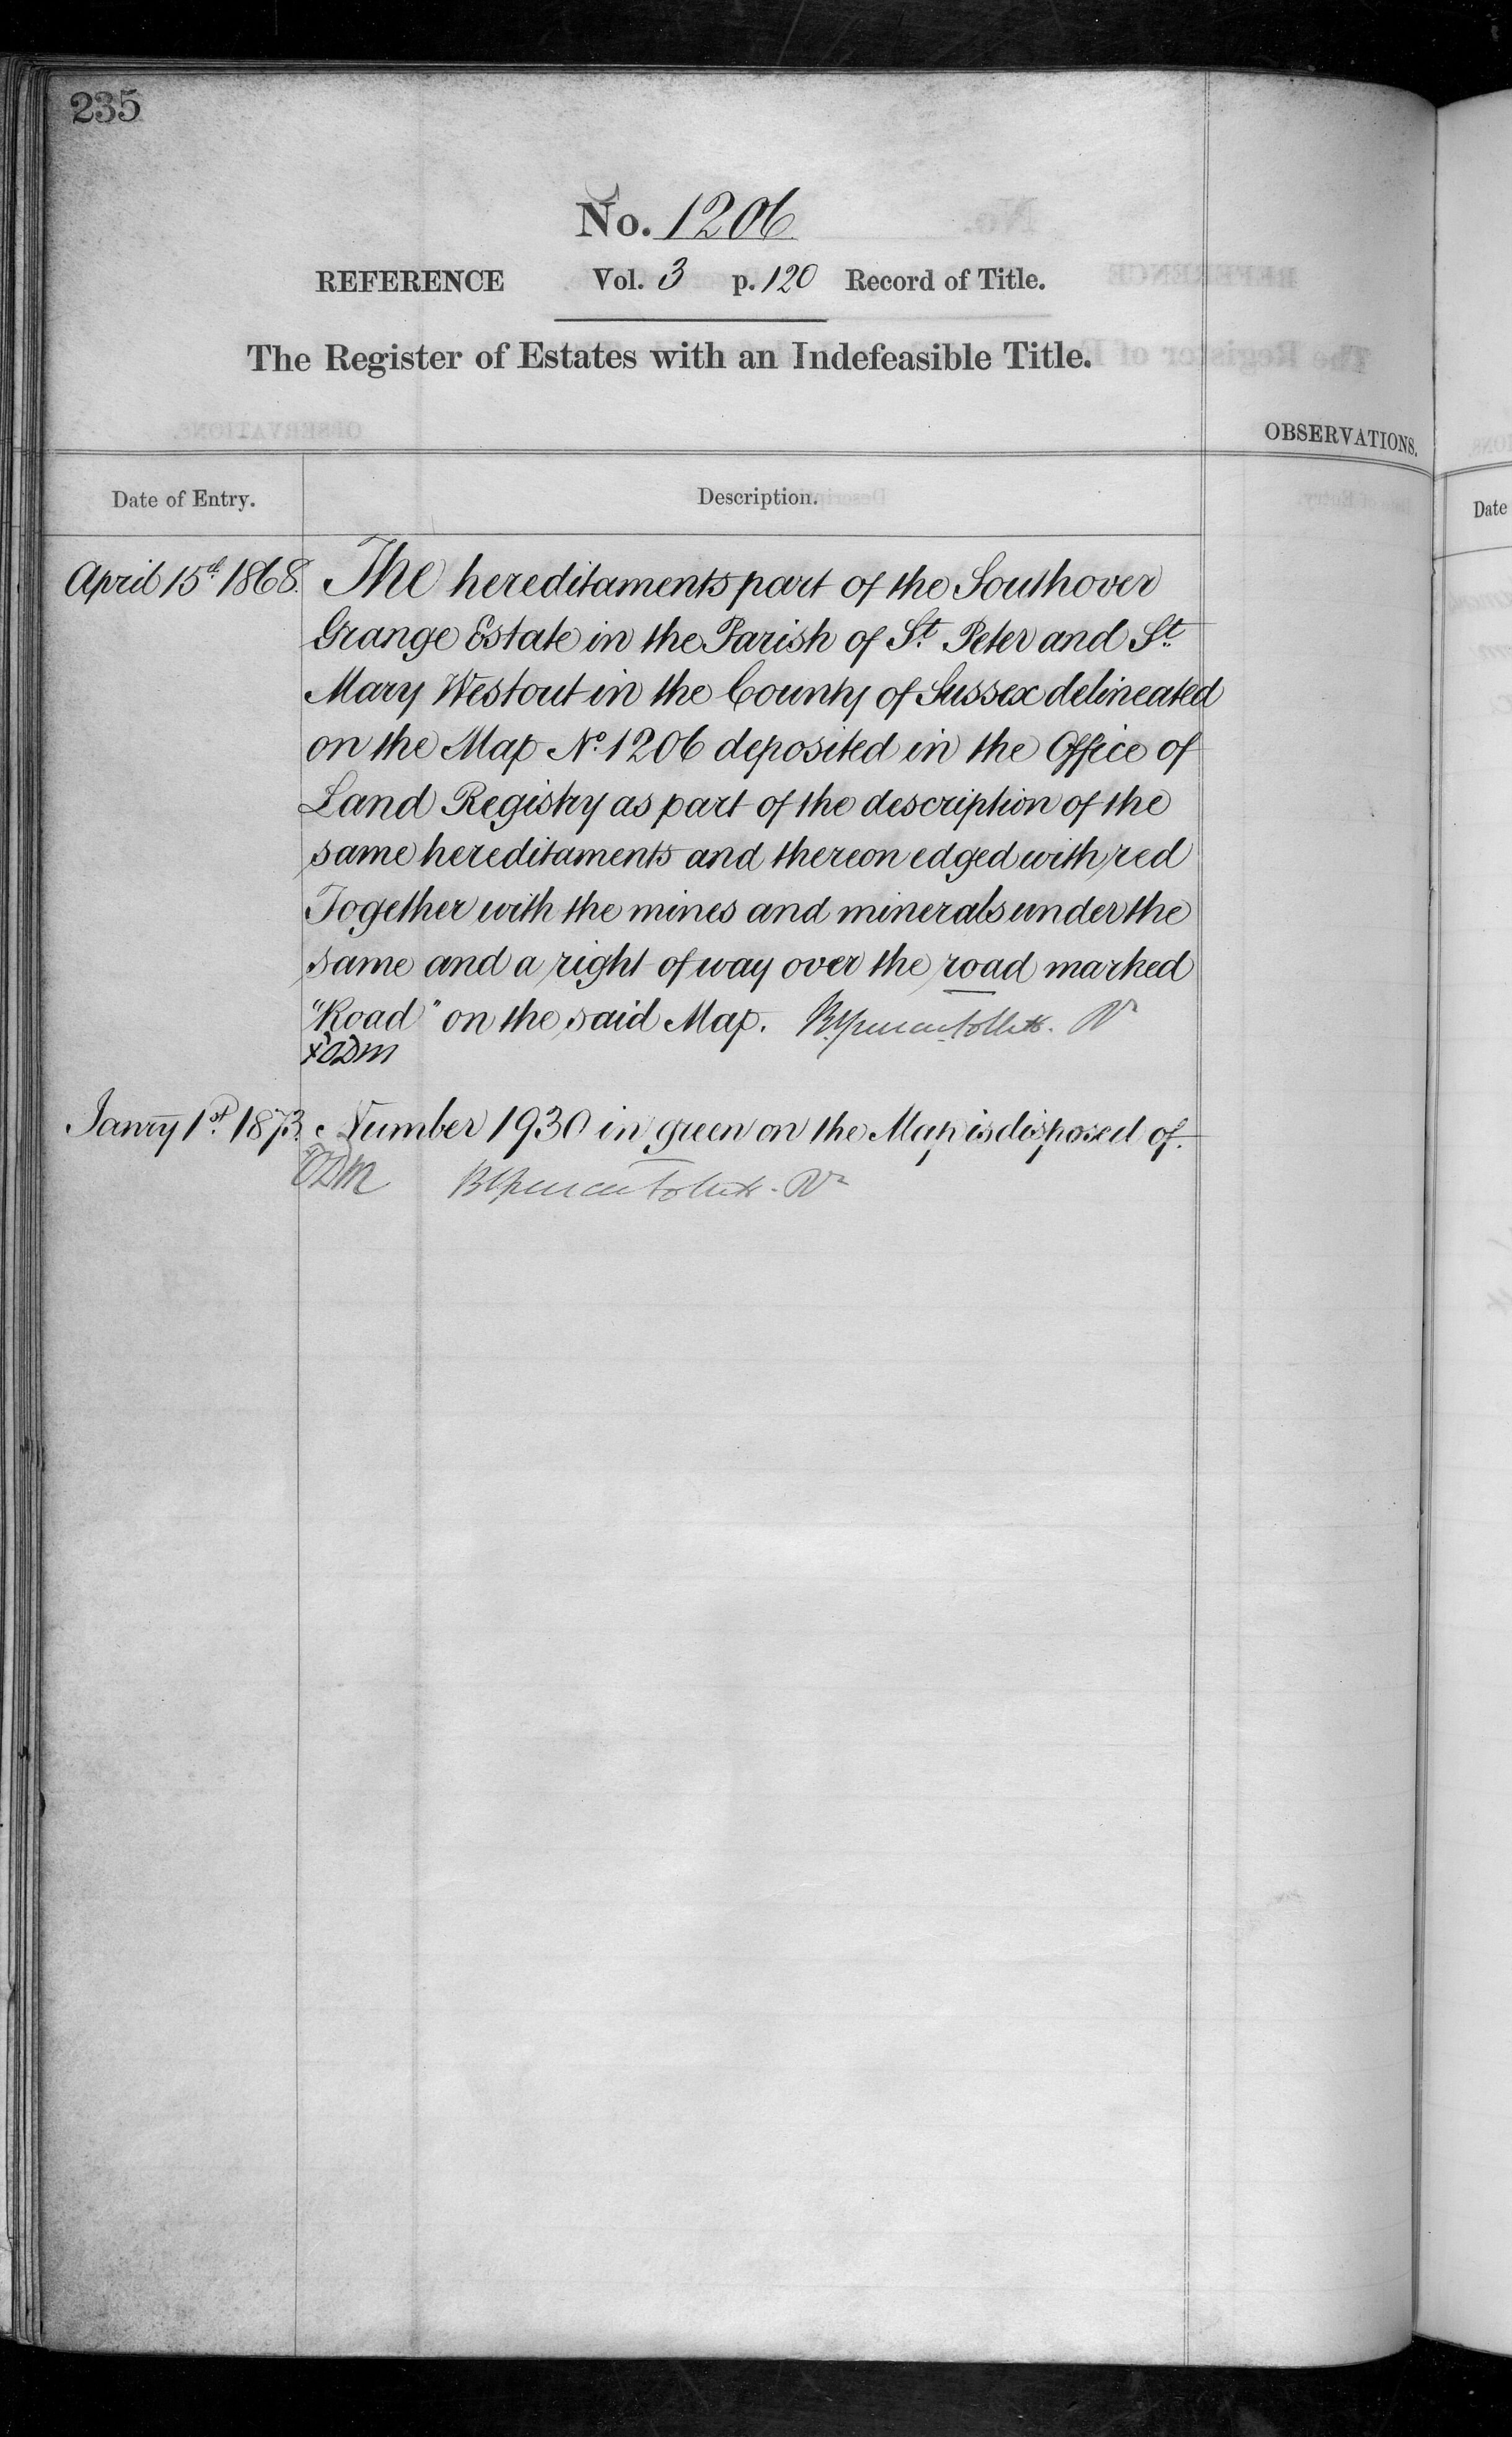 235
No. 1206
REFERENCE Vol. 3 p. 120 Record of Title.
The Register of Estates with an Indefeasible Title.
OBSERVATIONS.
Date of Entry. Description.
April 15th 1868. The hereditaments part of the Southover
Grange Estate in the Parish of St. Peter and St.
Mary Westout in the County of Sussex delineated
on the Map No. 1206 deposited in the Office of
Land Registry as part of the description of the
same hereditaments and thereon edged with red
Together with the mines and minerals under the
same and a right of way over the road marked
"Road" on the said Map.
Janry 1st. 1873. Number 1930 in green on the Map is disposed of.
Date